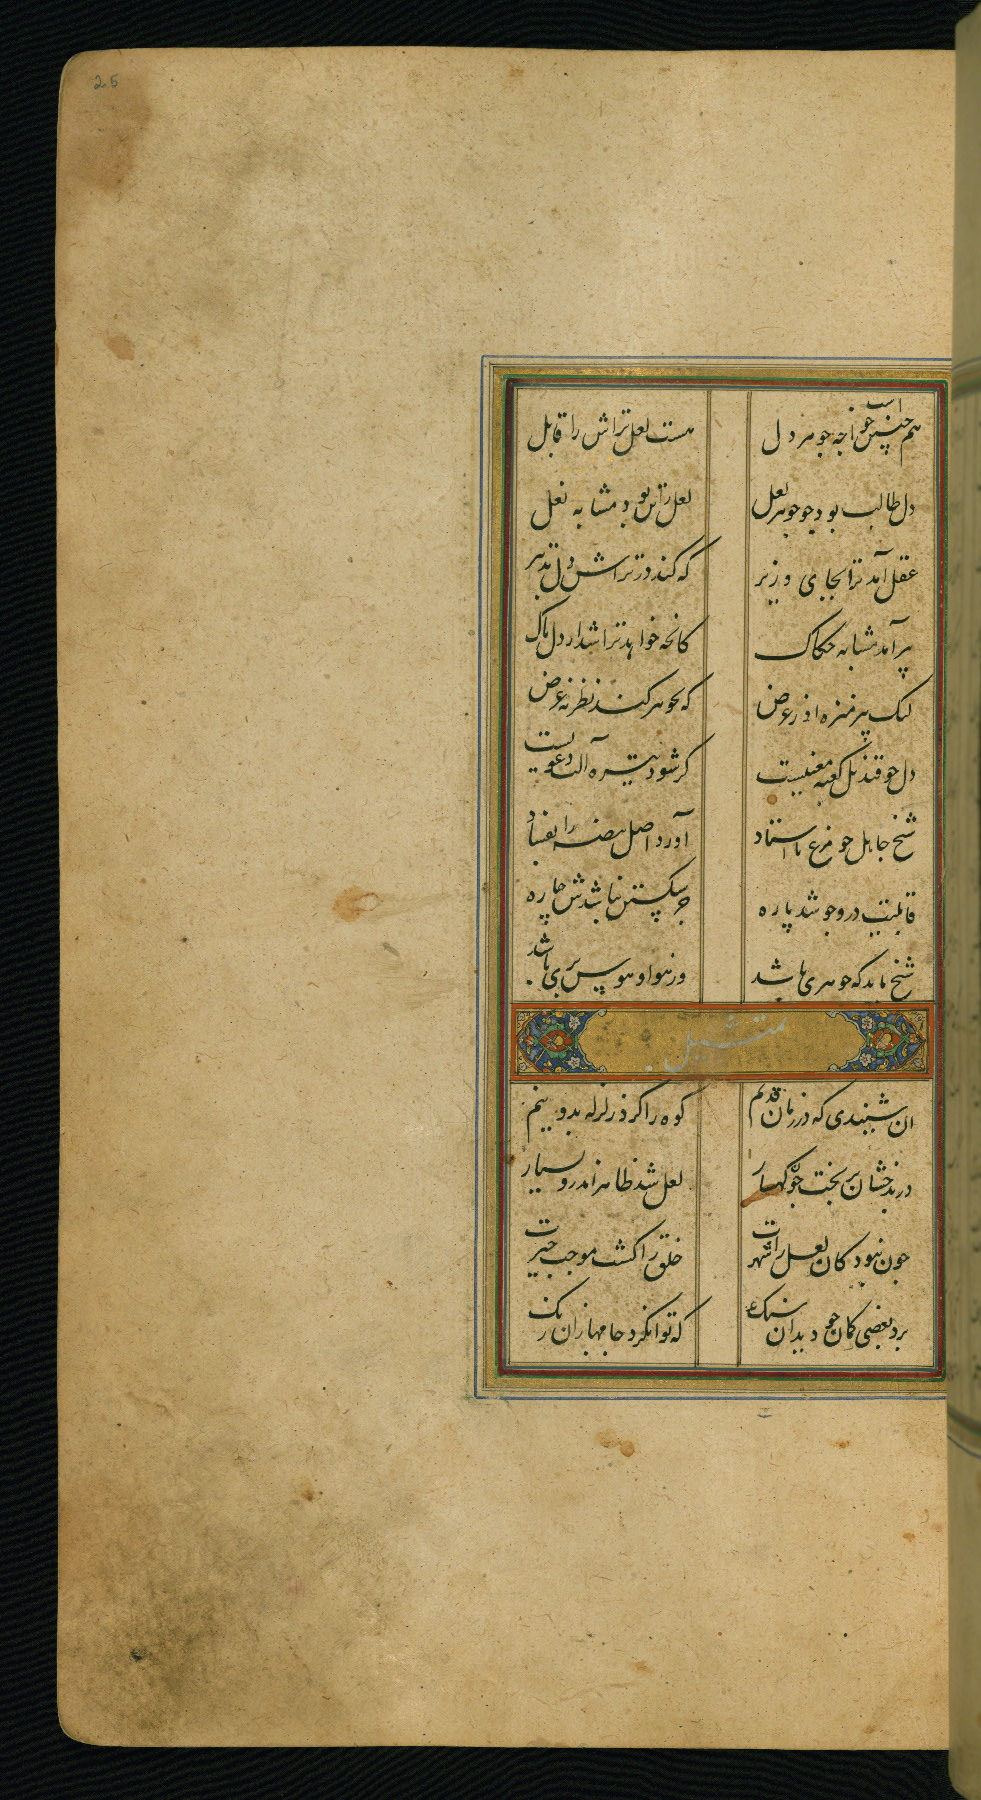 25
هم چنین است خواجه جوهر دل
هست لعل تراش را قابل
دل طالب بود چو جوهر لعل
لعل تراش بود مشابه نعل
عقل آمد ترا بجای وزیر
که کند در تراش دل تدبیر
پیر آمد مشابه حکاک
کانچه خواهد تراشد از دل پاک
لیک پیر منزه از غرض
که بجوهر کند نظر نه عرض
دل چو قندیل کعبه معنیست
کر شود تیره آلت دعویست
شیخ جاهل چو مرغ نا استاد
آورد اصل بیضه را بفساد
قابلیت درو چو شد پاره
جز شکستن نباشدش چاره
شیخ باید که جوهری باشد
ور نه او هوس پری باشد
تمثیل
ان شنیدی که در زمان قدیم
کوه را کرد زلزله بدو نیم
در بدخشان بریخت چون کهسار
لعل شد ظاهر اندرو بسیار
چون نبود کان لعل را شهرت
خلق را کشت موجب حیرت
برد بعضی کمان چو دید ان سنک
که توان کرد جامها زان رنک